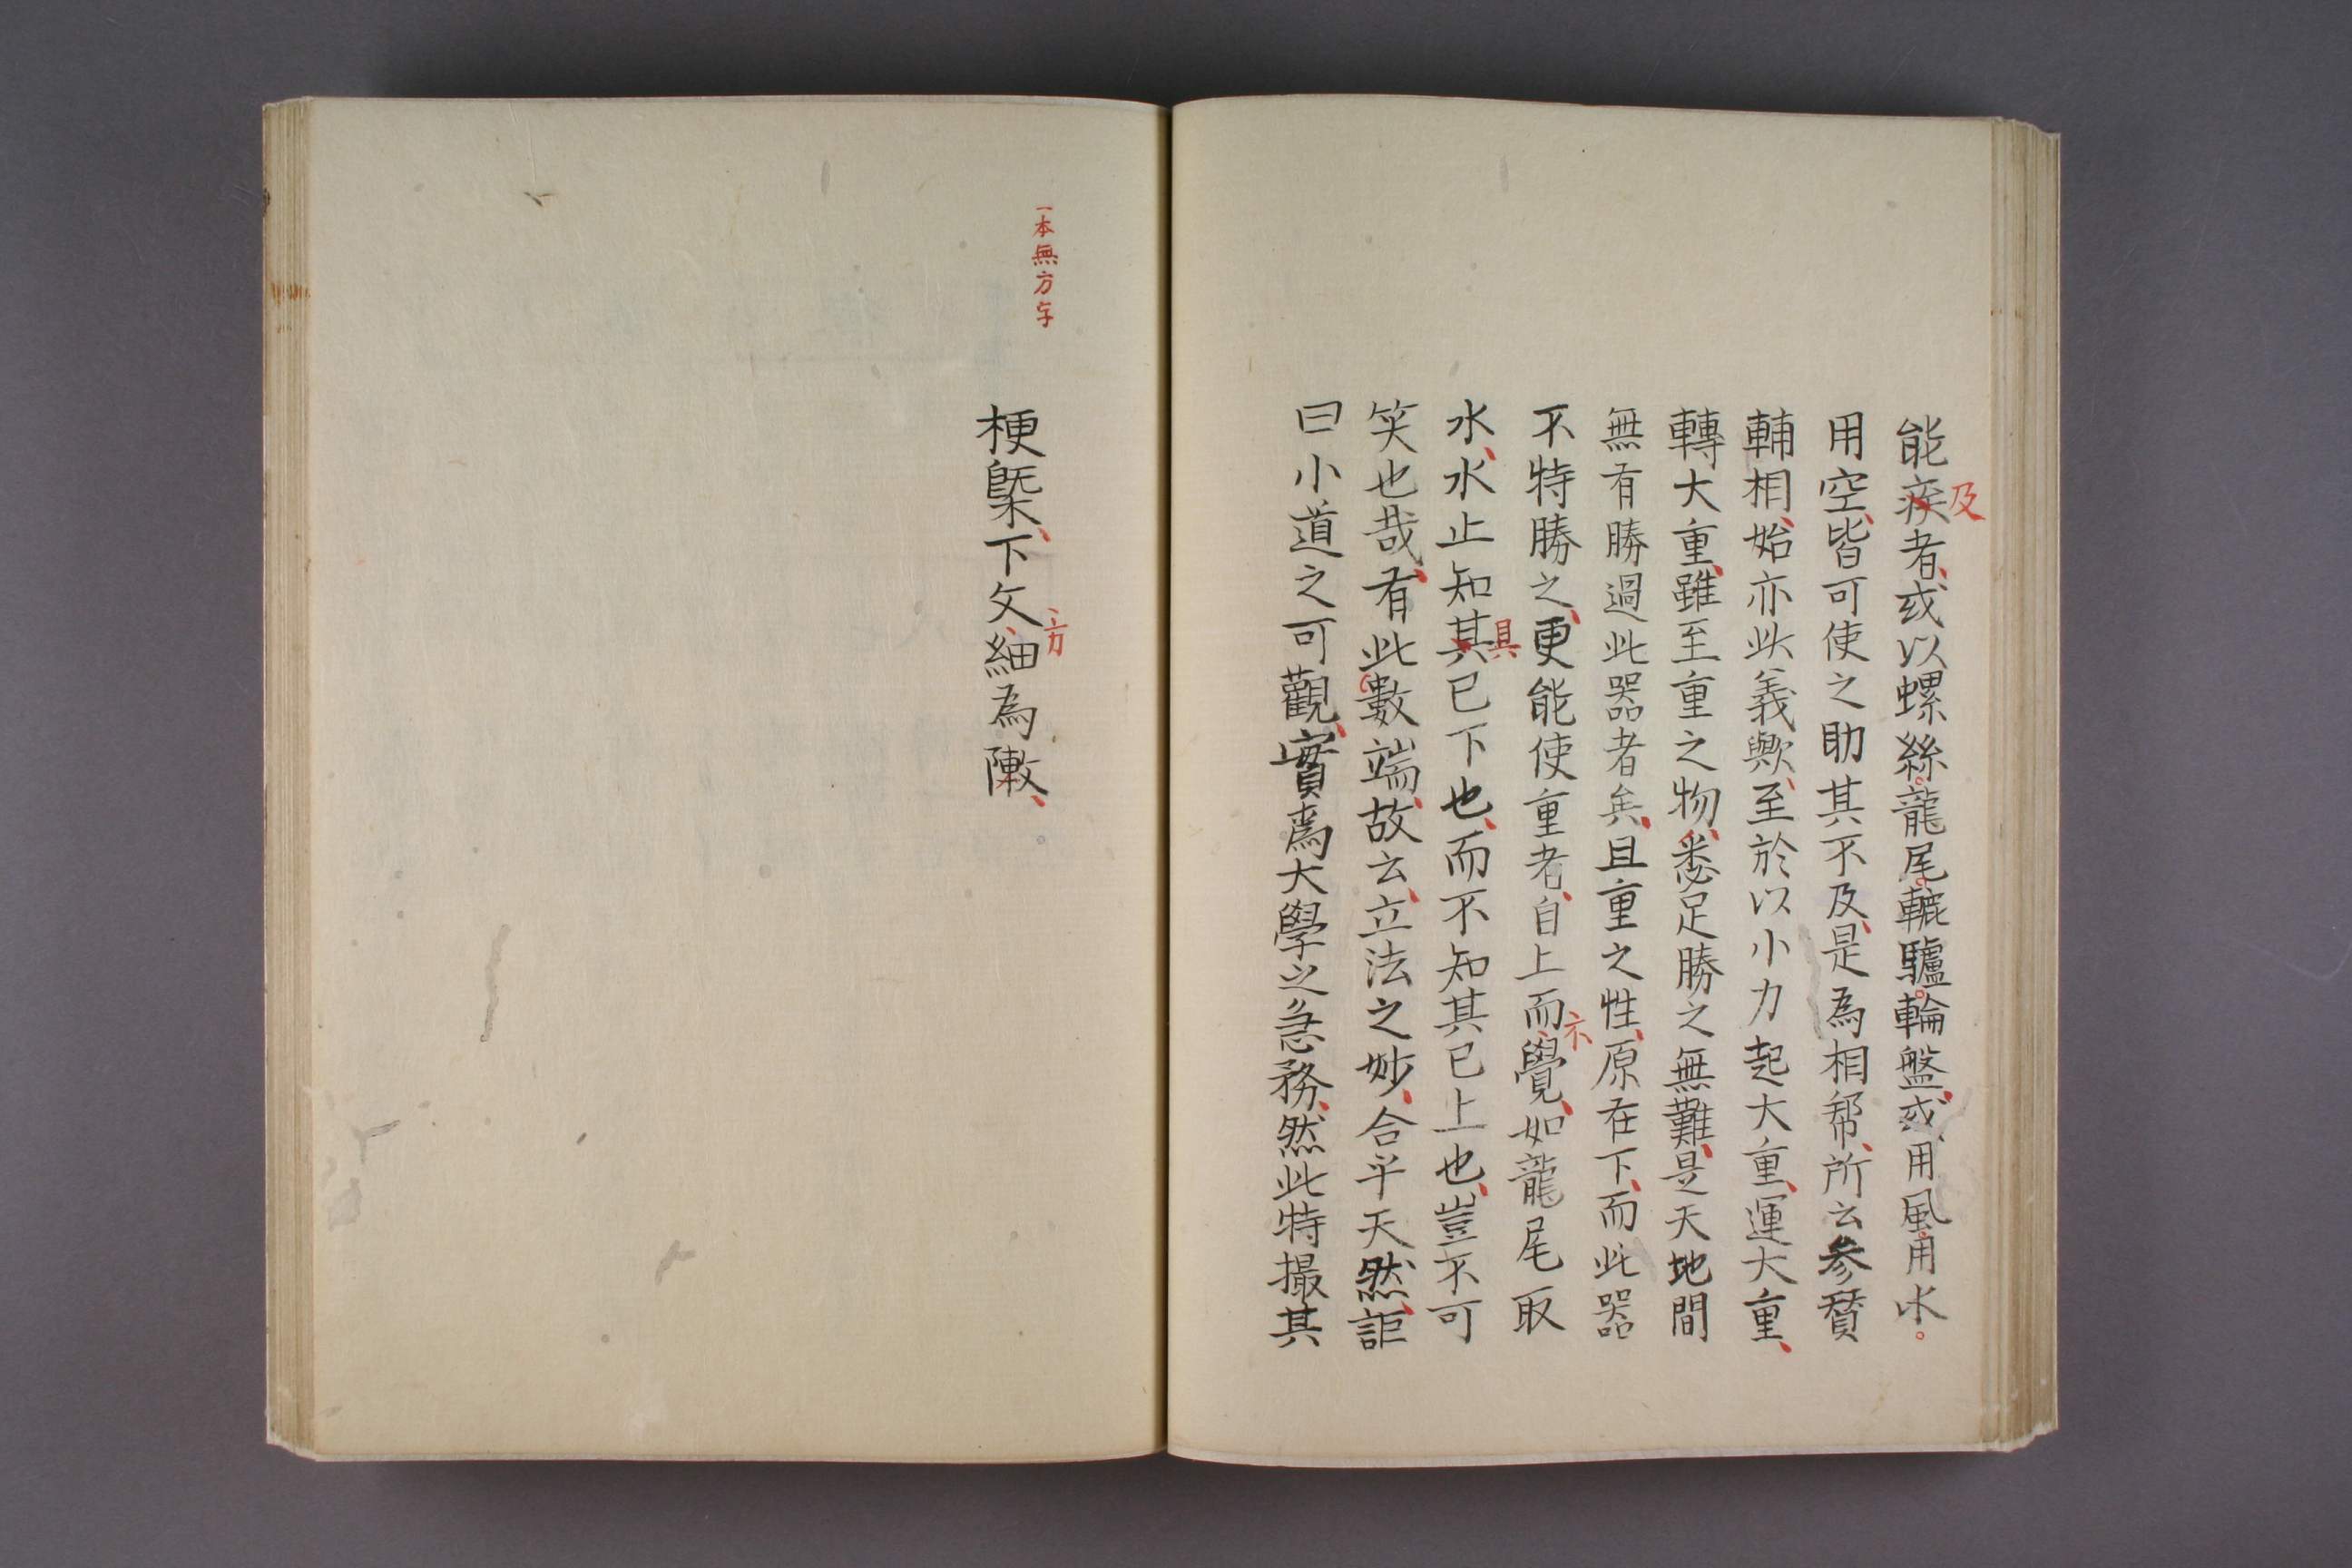 能疾者或以螺絲龍尾轆驢輪盤或用風用水
及
用空皆可使之助其不及是為相幫所云参賛
輔相始亦此義歟至於以小力起大重運大重
轉大重雖至重之物悉足勝之無難是天地間
無有勝過此器者矣且重之性原在下而此器
不特勝之更能使重者自上而覺如龍尾取
不
水水止知其已下也而不知其已上也豈不可
具
笑也哉有此數端故云立法之妙合乎天然詎
曰小道之可觀實爲大學之急務然此特撮其
一本無方字
梗槩下文細為陳
方